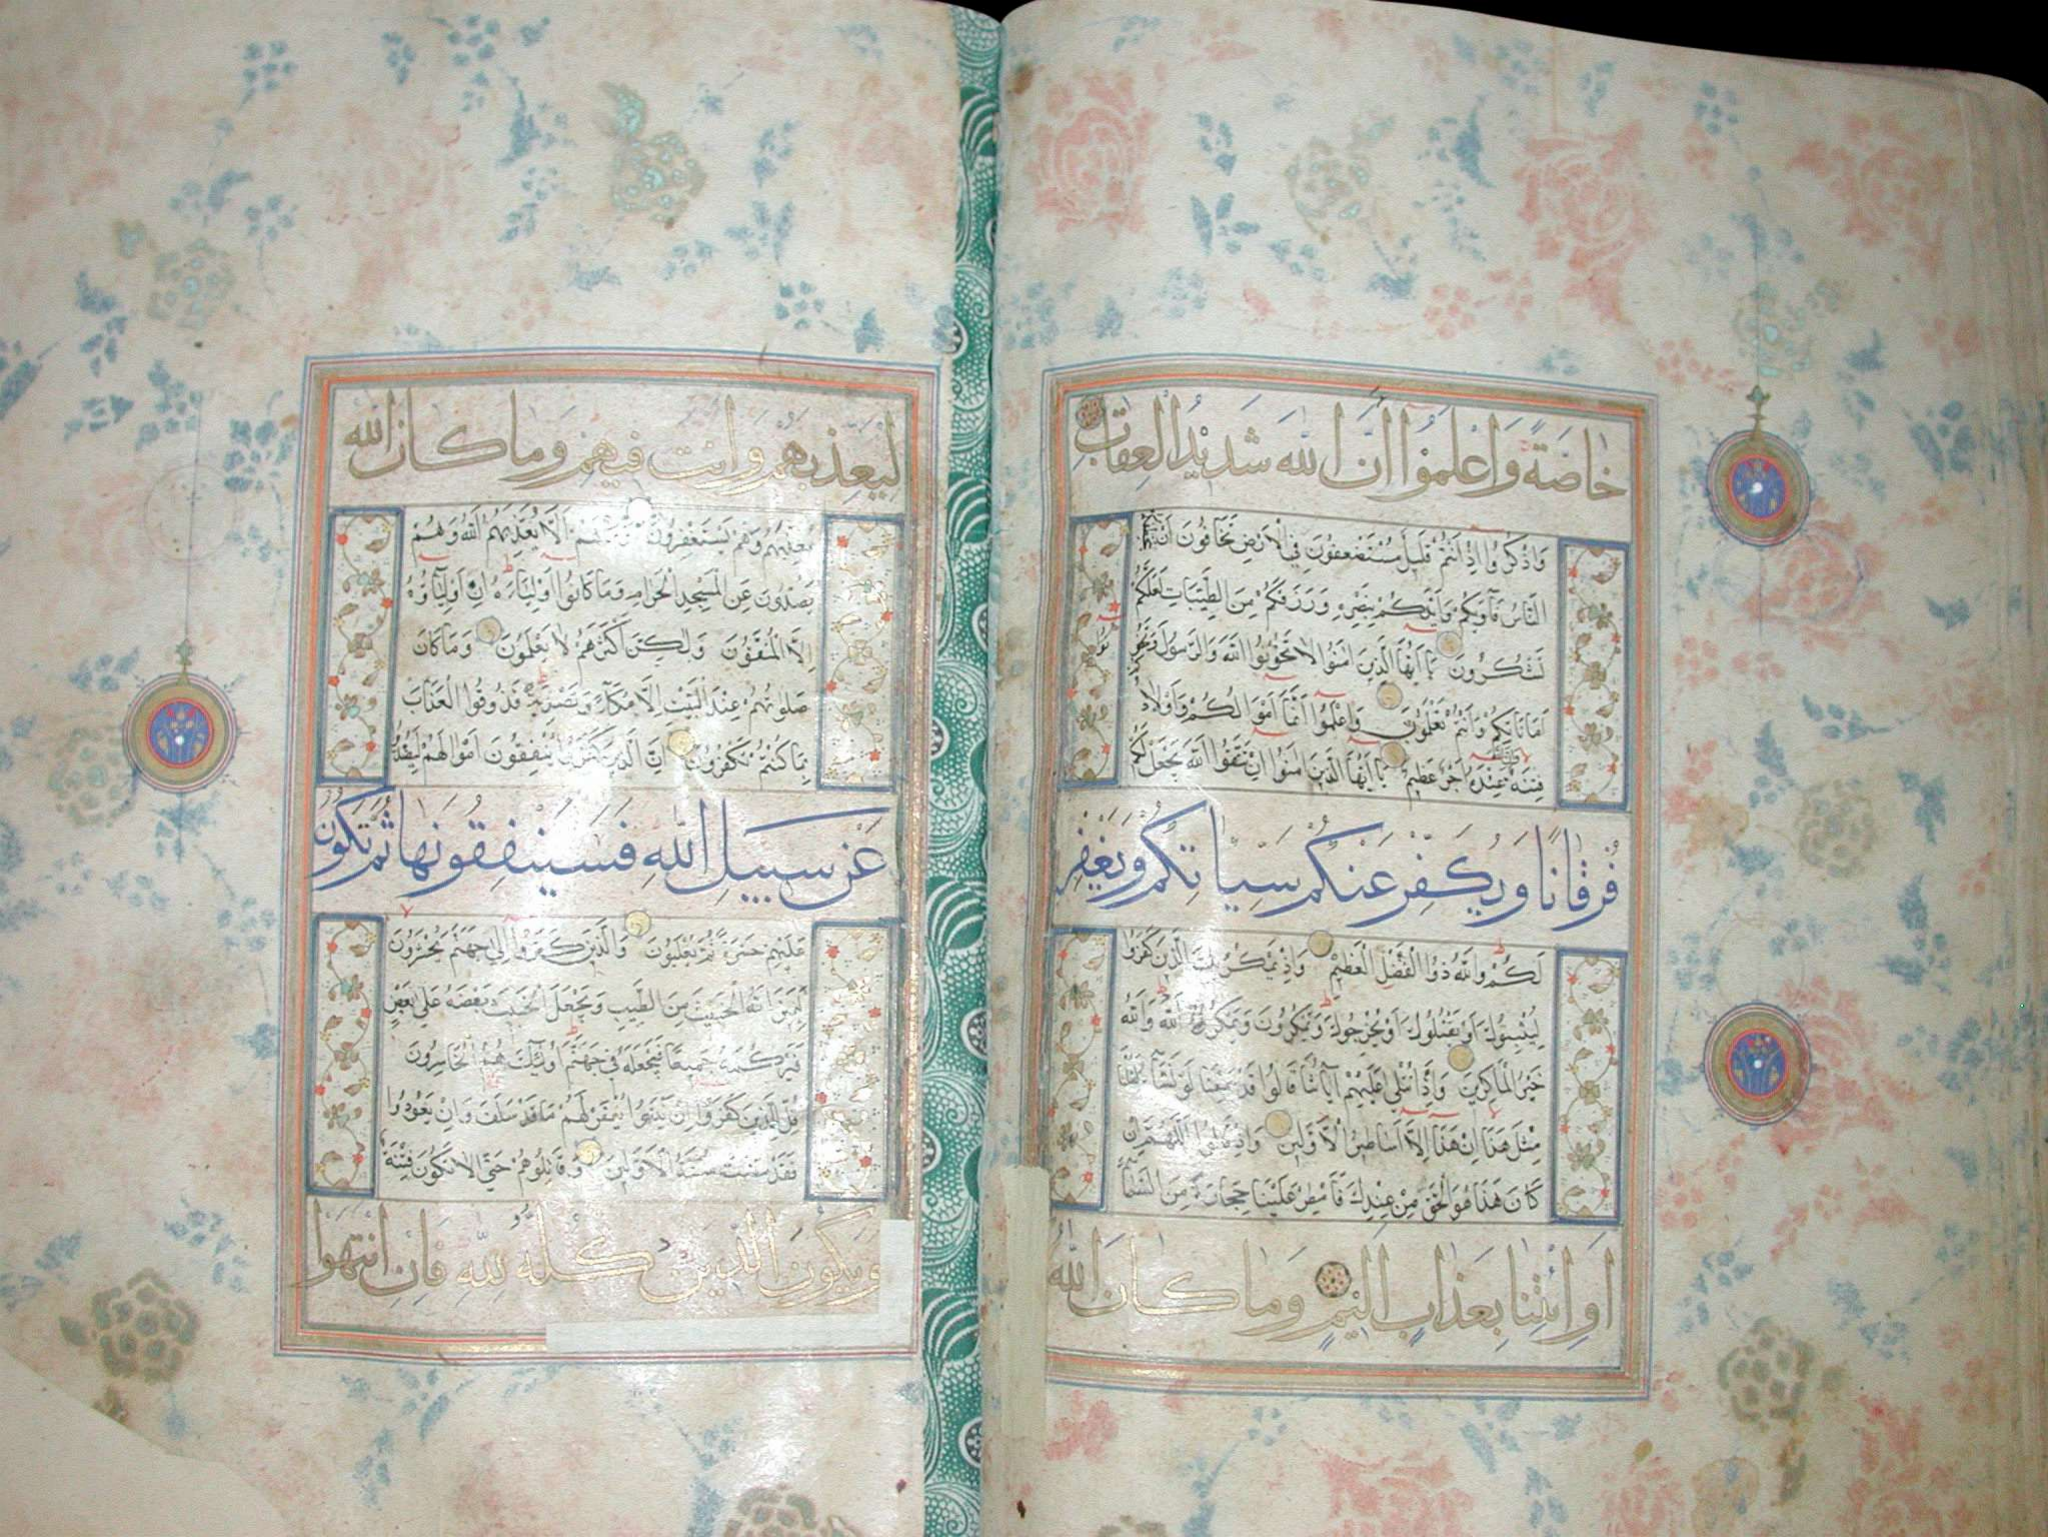 خَاصَّةً وَاعْلَمُوا أَنَّ اللهَ شَدِيدُ الْعِقَابِ
وَاذْكُرُوا إِذْ أَنْتُمْ قَلِيلٌ مُسْتَضْعَفُونَ فِي الْأَرْضِ تَخَافُونَ أَنْ يَتَخَطَّفَكُمُ
النَّاسُ فَآوَيكُمْ وَأَيَّدَكُمْ بِنَصْرِهِ وَرَزَقَكُمْ مِنَ الطَّيِّبَاتِ لَعَلَّكُمْ
تَشْكُرُونَ يَا أَيُّهَا الَّذِينَ آمَنُوا لَا تَخُونُوا اللهَ وَالرَّسُولَ وَتَخُونُوا
أَمَانَاتِكُمْ وَأَنْتُمْ تَعْلَمُونَ وَاعْلَمُوا أَنَّمَا أَمْوَالُكُمْ وَأَوْلَادُ
فِتْنَةٌ عِنْدَهُ أَجْرٌ عَظِيمٌ يَا أَيُّهَا الَّذِينَ آمَنُوا إِنْ تَتَّقُوا اللهَ يَجْعَلْ لَكُمْ
فُرْقَانًا وَيُكَفِّرْ عَنْكُمْ سَيِّاتِكُمْ وَيَغْفِرْ
لَكُمْ وَاللهُ ذُوا الْفَضْلِ الْعَظِيمِ وَإِذْ يَمْكُرُ بِكَ الَّذِينَ كَفَرُوا
لِيُثْبِتُوكَ أَوْ يَقْتُلُوكَ أَوْ يُخْرِجُوكَ وَيَمْكُرُونَ وَيَمْكُرُ اللهُ وَاللهُ
خَيْرُ الْمَاكِرِينَ وَإِذَا تُتْلَى عَلَيْهِمْ آيَاتُنَا قَالُوا قَدْ سَمِعْنَا لَوْ نَشَاءُ لَقُلْنَا
مِثْلَ هَذَا إِنْ هَذَا إِلَّا أَسَاطِيرُ الْأَوَّلِينَ وَإِذْ قَالُوا اللَّهُمَّ إِنْ
كَانَ هَذَا هُوَ الْحَقَّ مِنْ عِنْدِكَ فَأَمْطِرْ عَلَيْنَا حِجَارَةً مِنَ السَّمَاءِ
أَوِ ائْتِنَا بِعَذَابٍ أَلِيمٍ وَمَا كَانَ اللهُ
لِيُعَذِّبَهُمْ وَأَنْتَ فِيهِمْ وَمَا كَانَ اللهُ
مُعَذِّبَهُمْ وَهُمْ يَسْتَغْفِرُونَ وَمَا لَهُمْ أَلَّا يُعَذِّبَهُمُ اللهُ وَهُمْ
يَصُدُّونَ عَنِ الْمَسْجِدِ الْحَرَامِ وَمَا كَانُوا أَوْلِيَاءَهُ إِنْ أَوْلِيَاؤُهُ
إِلَّا الْمُتَّقُونَ وَلَكِنَّ أَكْثَرَهُمْ لَا يَعْلَمُونَ وَمَا كَانَ
صَلَوتُهُمْ عِنْدَ الْبَيْتِ إِلَّا مُكَاءً وَتَصْدِيَةً فَذُوقُوا الْعَذَابَ
بِمَا كُنْتُمْ تَكْفُرُونَ إِنَّ الَّذِينَ كَفَرُوا يُنْفِقُونَ أَمْوَالَهُمْ لِيَصُدُّوا
عَنْ سَبِيلِ اللهِ فَسَيُنْفِقُونَهَا ثُمَّ تَكُونُ
عَلَيْهِمْ حَسْرَةً ثُمَّ يُغْلَبُونَ وَالَّذِينَ كَفَرُوا إِلَى جَهَنَّمَ يُحْشَرُونَ
لِيَمِيزَ اللهُ الْخَبِيثَ مِنَ الطَّيِّبِ وَيَجْعَلَ الْخَبِيثَ بَعْضَهُ عَلَى بَعْضٍ
فَيَرْكُمَهُ جَمِيعًا فَيَجْعَلَهُ فِي جَهَنَّمَ أُولَئِكَ هُمُ الْخَاسِرُونَ
قُلْ لِلَّذِينَ كَفَرُوا إِنْ يَنْتَهُوا يُغْفَرْ لَهُمْ مَا قَدْ سَلَفَ وَإِنْ يَعُودُوا
فَقَدْ مَضَتْ سُنَّةُ الْأَوَّلِينَ وَقَاتِلُوهُمْ حَتَّى لَا تَكُونَ فِتْنَةٌ
وَيَكُونَ الدِّينُ كُلُّهُ لِلَّهِ فَإِنِ انْتَهَوْا